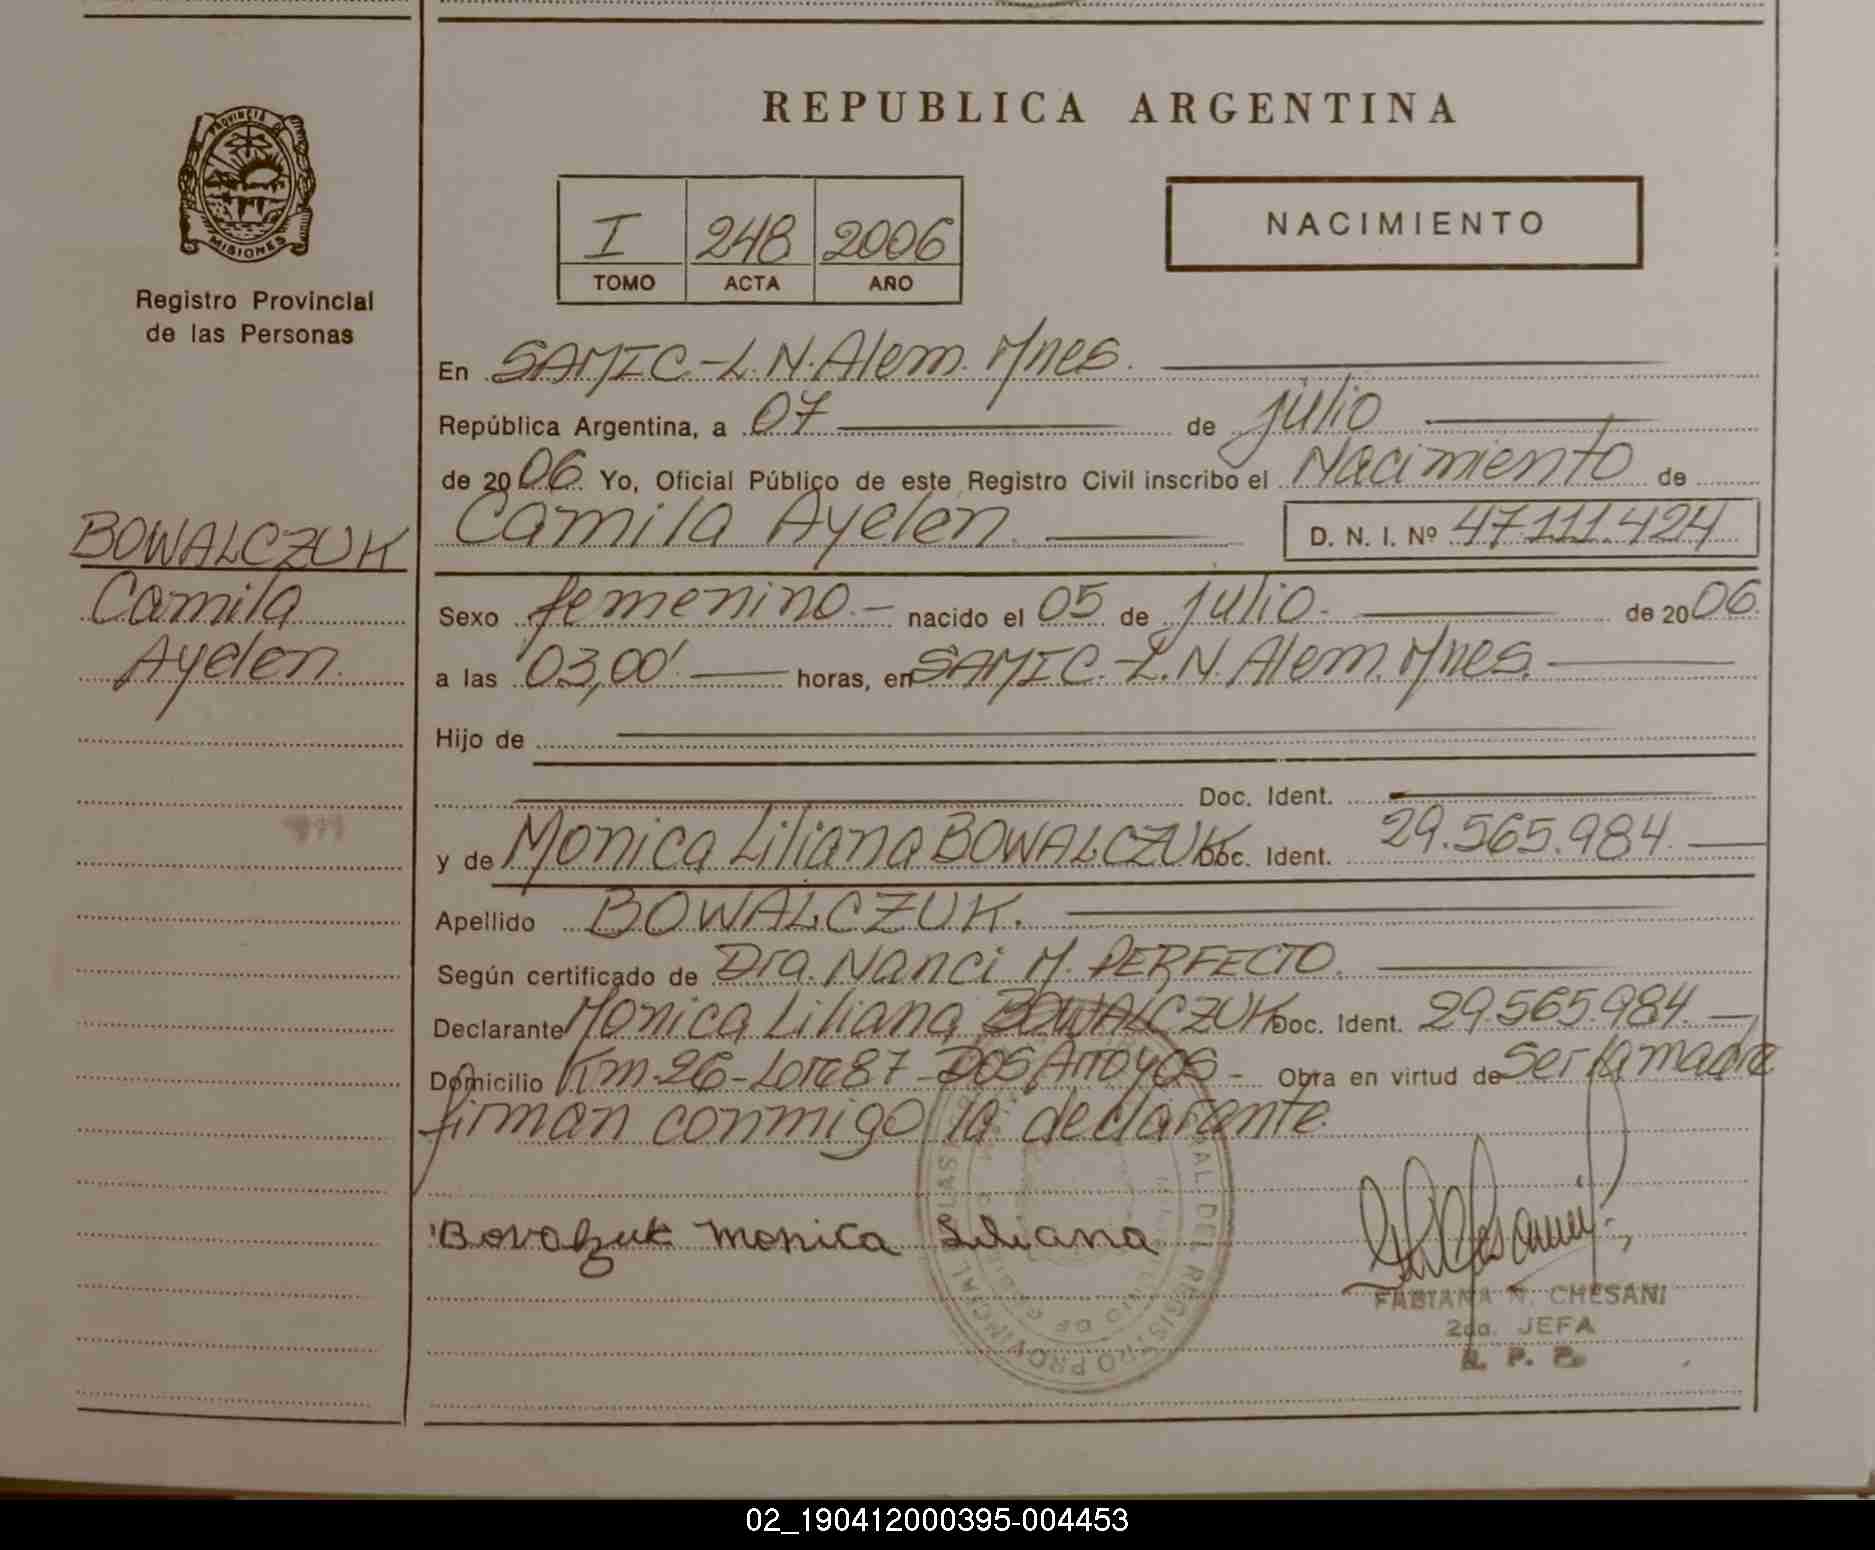 REPUBLICA ARGENTINA
PROVINCIA DE
MISIONES
Registro Provincial
de las Personas
I 248 2006
TOMO ACTA AÑO
NACIMIENTO
En SAMIC-L.N.Alem. Mnes.
República Argentina, a 07 de julio
de 2006 Yo, Oficial Público de este Registro Civil inscribo el Nacimiento de
Camila Ayelen. D. N. I. Nº 47.111.424
BOWALCZUK
Camila
Ayelen.
Sexo femenino.- nacido el 05 de julio. de 2006.
a las 03,00'. horas, en SAMIC.-L.N.Alem. Mnes.
Hijo de
Doc. Ident.
y de Monica Liliana BOWALCZUK Doc. Ident. 29.565.984.
Apellido BOWALCZUK.
Según certificado de Dra. Nanci M. PERFECTO.
Declarante Monica Liliana BOWALCZUK Doc. Ident. 29.565.984.
Domicilio Km-26-Lote 87-DOS Arroyos- Obra en virtud de Ser la madre
firman conmigo la declarante.
Monica Liliana
FABIANA N. CHESANI
2da. JEFA
R. P. P.
REGISTRO PROVINCIAL
02_190412000395-004453